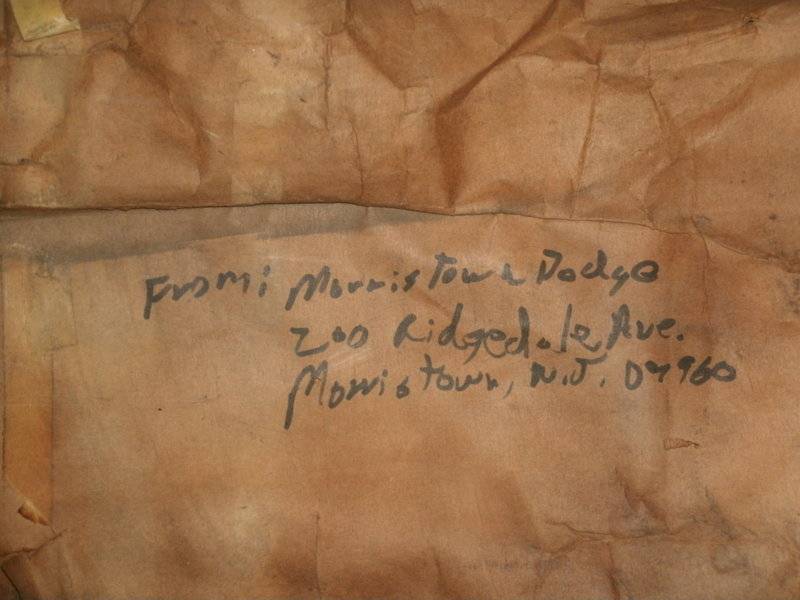 From: Morristown Dodge
200 Ridgedale Ave.
Morristown, N.J. 07960